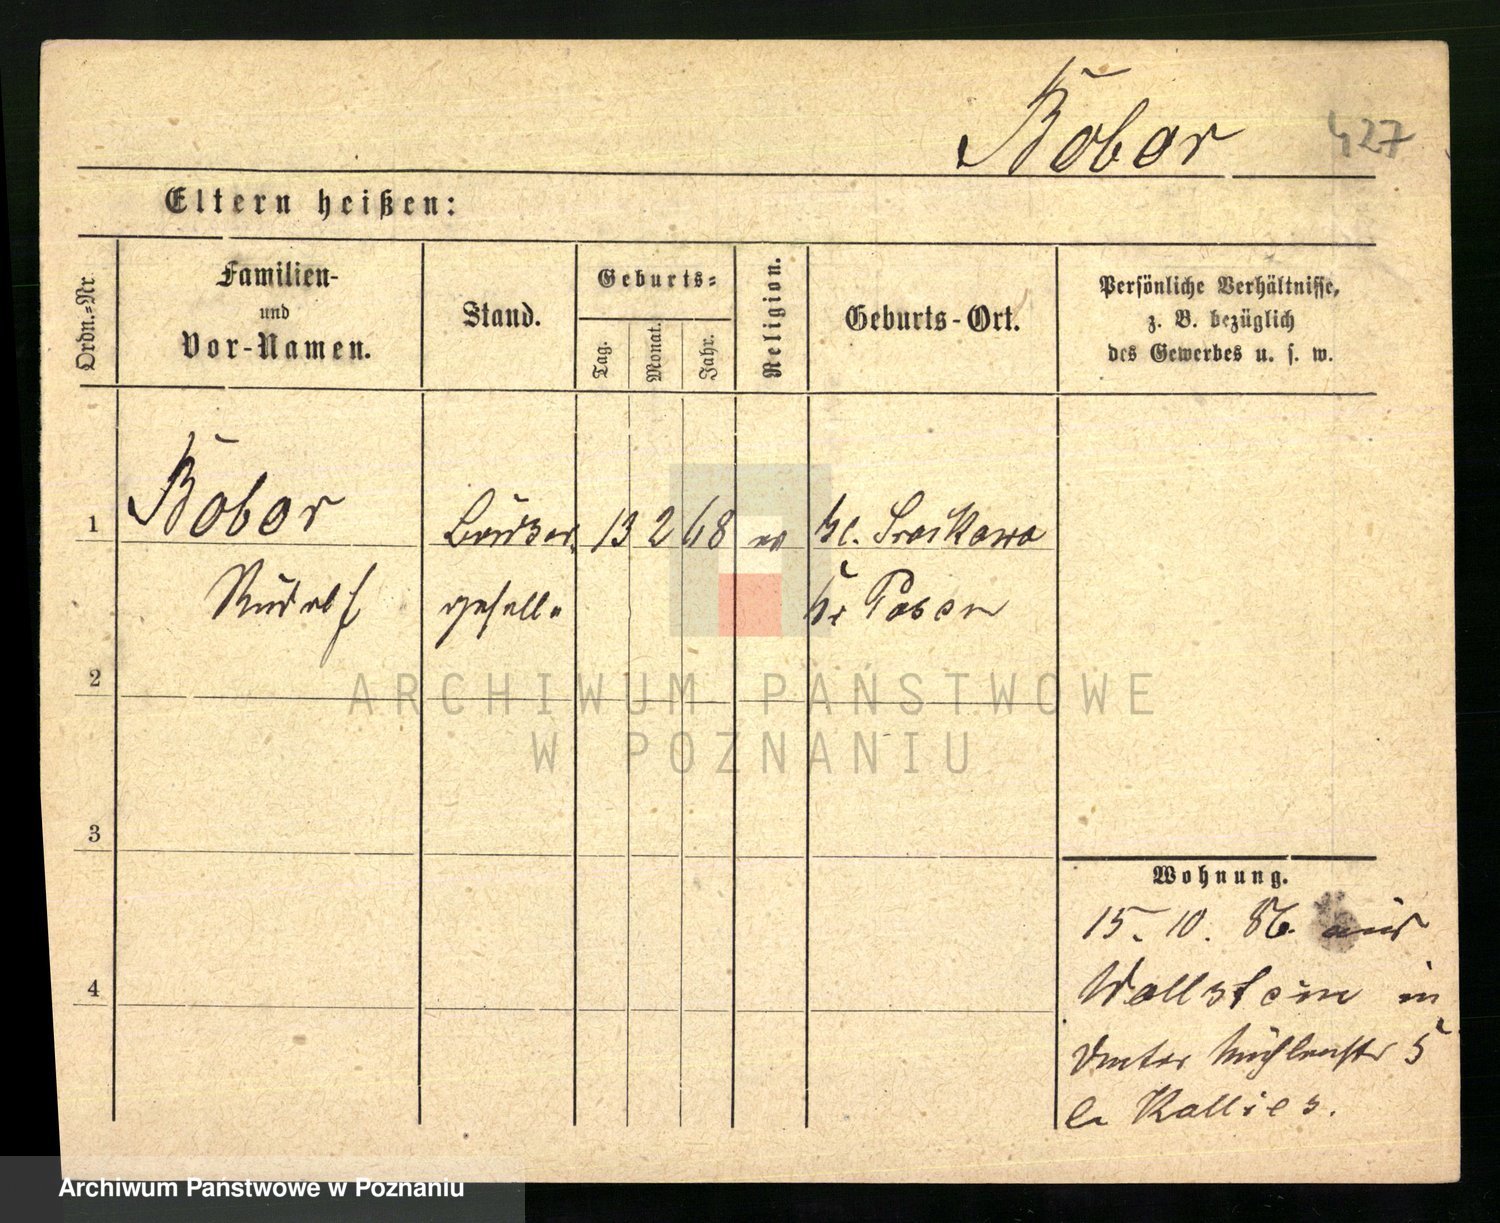 Bobor 427
Eltern heißen:
Ordn.=Nr.
Familien-
und
Vor-Namen.
Stand.
Geburts=
Tag.
Monat.
Jahr.
Religion.
Geburts-Ort.
Persönliche Verhältnisse,
z. B. bezüglich
des Gewerbes u. s. w.
1 Bobor 13 2 68 ev Kl.
Rudolf geselle Kr Posen
2
3
4
Wohnung.
15. 10. 86. aus
Wollstein in
Unter Mühlenstr 5
b. Kallies.
ARCHIWUM PAŃSTWOWE
W POZNANIU
Archiwum Państwowe w Poznaniu